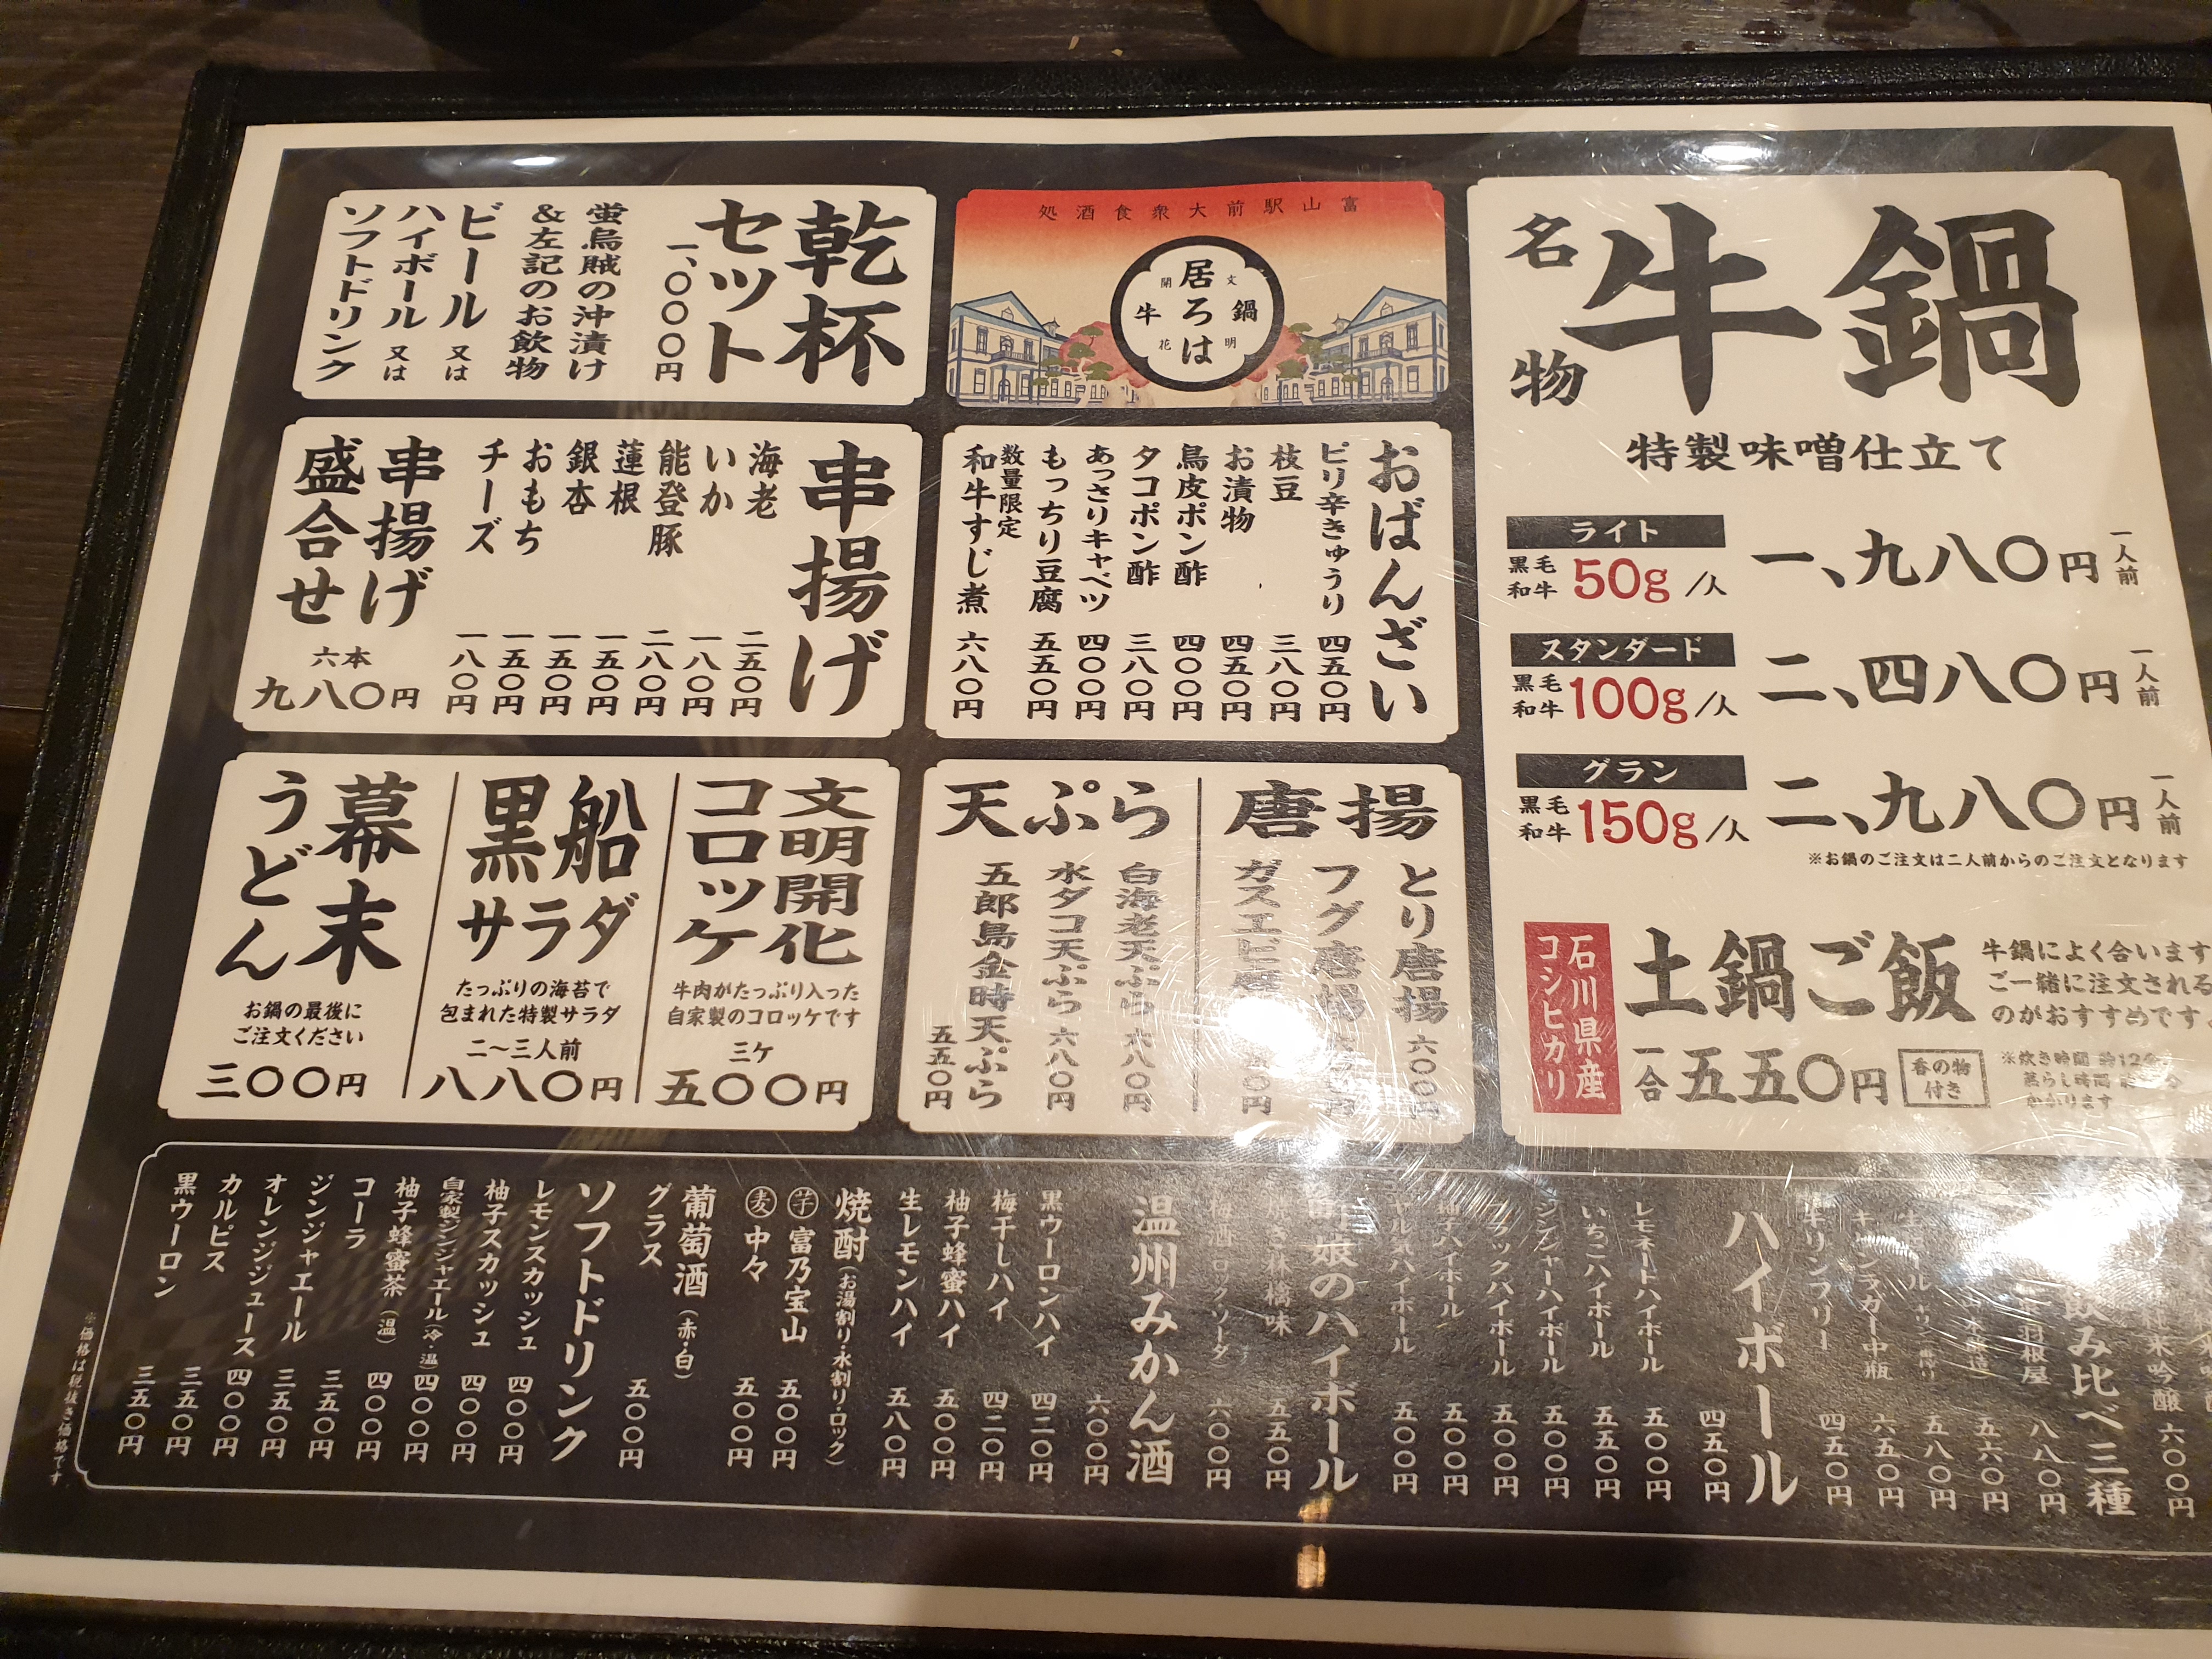 名物
牛鍋
特製味噌仕立て
ライト
黒毛和牛 50g/人
一、九八〇円
一人前
スタンダード
黒毛和牛 100g/人
二、四八〇円
一人前
グラン
黒毛和牛 150g/人
二、九八〇円
一人前
※お鍋のご注文は二人前からのご注文となります
石川県産
コシヒカリ
土鍋ご飯
牛鍋によく合います
ご一緒に注文される
のがおすすめです
一合 五五〇円
香の物付き
※炊き時間 約12
蒸らし時間
かかります
富山駅前大衆食酒処
文明開花
牛鍋
居ろは
乾杯
セット
一、〇〇〇円
蛍烏賊の沖漬け
&左記のお飲物
ビール 又は
ハイボール 又は
ソフトドリンク
おばんざい
ピリ辛きゅうり 四五〇円
枝豆 三八〇円
お漬物 四五〇円
鳥皮ポン酢 四〇〇円
タコポン酢 三八〇円
あっさりキャベツ 四〇〇円
もっちり豆腐 五五〇円
数量限定
和牛すじ煮 六八〇円
串揚げ
海老 二五〇円
いか 一八〇円
能登豚 二八〇円
蓮根 一五〇円
銀杏 一五〇円
おもち 一五〇円
チーズ 一八〇円
串揚げ
盛合せ
六本
九八〇円
唐揚
とり唐揚 六〇〇円
フグ唐揚
ガスエビ唐
天ぷら
白海老天ぷら 六八〇円
水タコ天ぷら 六八〇円
五郎島金時天ぷら 五五〇円
文明開化
コロッケ
牛肉がたっぷり入った
自家製のコロッケです
三ケ
五〇〇円
黒船
サラダ
たっぷりの海苔で
包まれた特製サラダ
二〜三人前
八八〇円
幕末
うどん
お鍋の最後に
ご注文ください
三〇〇円
純米吟醸 六〇〇円
飲み比べ三種
羽根屋 八八〇円
五六〇円
五八〇円
キリンラガー中瓶 六五〇円
キリンフリー 四五〇円
ハイボール
四五〇円
レモネードハイボール 五〇〇円
いちごハイボール 五五〇円
ジンジャーハイボール 五〇〇円
ブラックハイボール 五〇〇円
柚子ハイボール 五〇〇円
ヤル気ハイボール 五〇〇円
娘のハイボール
林檎味 五五〇円
梅酒（ロック・ソーダ） 六〇〇円
温州みかん酒
六〇〇円
黒ウーロンハイ 四二〇円
梅干しハイ 四二〇円
柚子蜂蜜ハイ 五〇〇円
生レモンハイ 五八〇円
焼酎（お湯割り・水割り・ロック）
芋 富乃宝山 五〇〇円
麦 中々 五〇〇円
葡萄酒（赤・白）
グラス 五〇〇円
ソフトドリンク
レモンスカッシュ 四〇〇円
柚子スカッシュ 四〇〇円
自家製ジンジャエール（冷・温） 四〇〇円
柚子蜂蜜茶（温） 四〇〇円
コーラ 三五〇円
ジンジャエール 三五〇円
オレンジジュース 四〇〇円
カルピス 三五〇円
黒ウーロン 三五〇円
※価格は税抜き価格です。